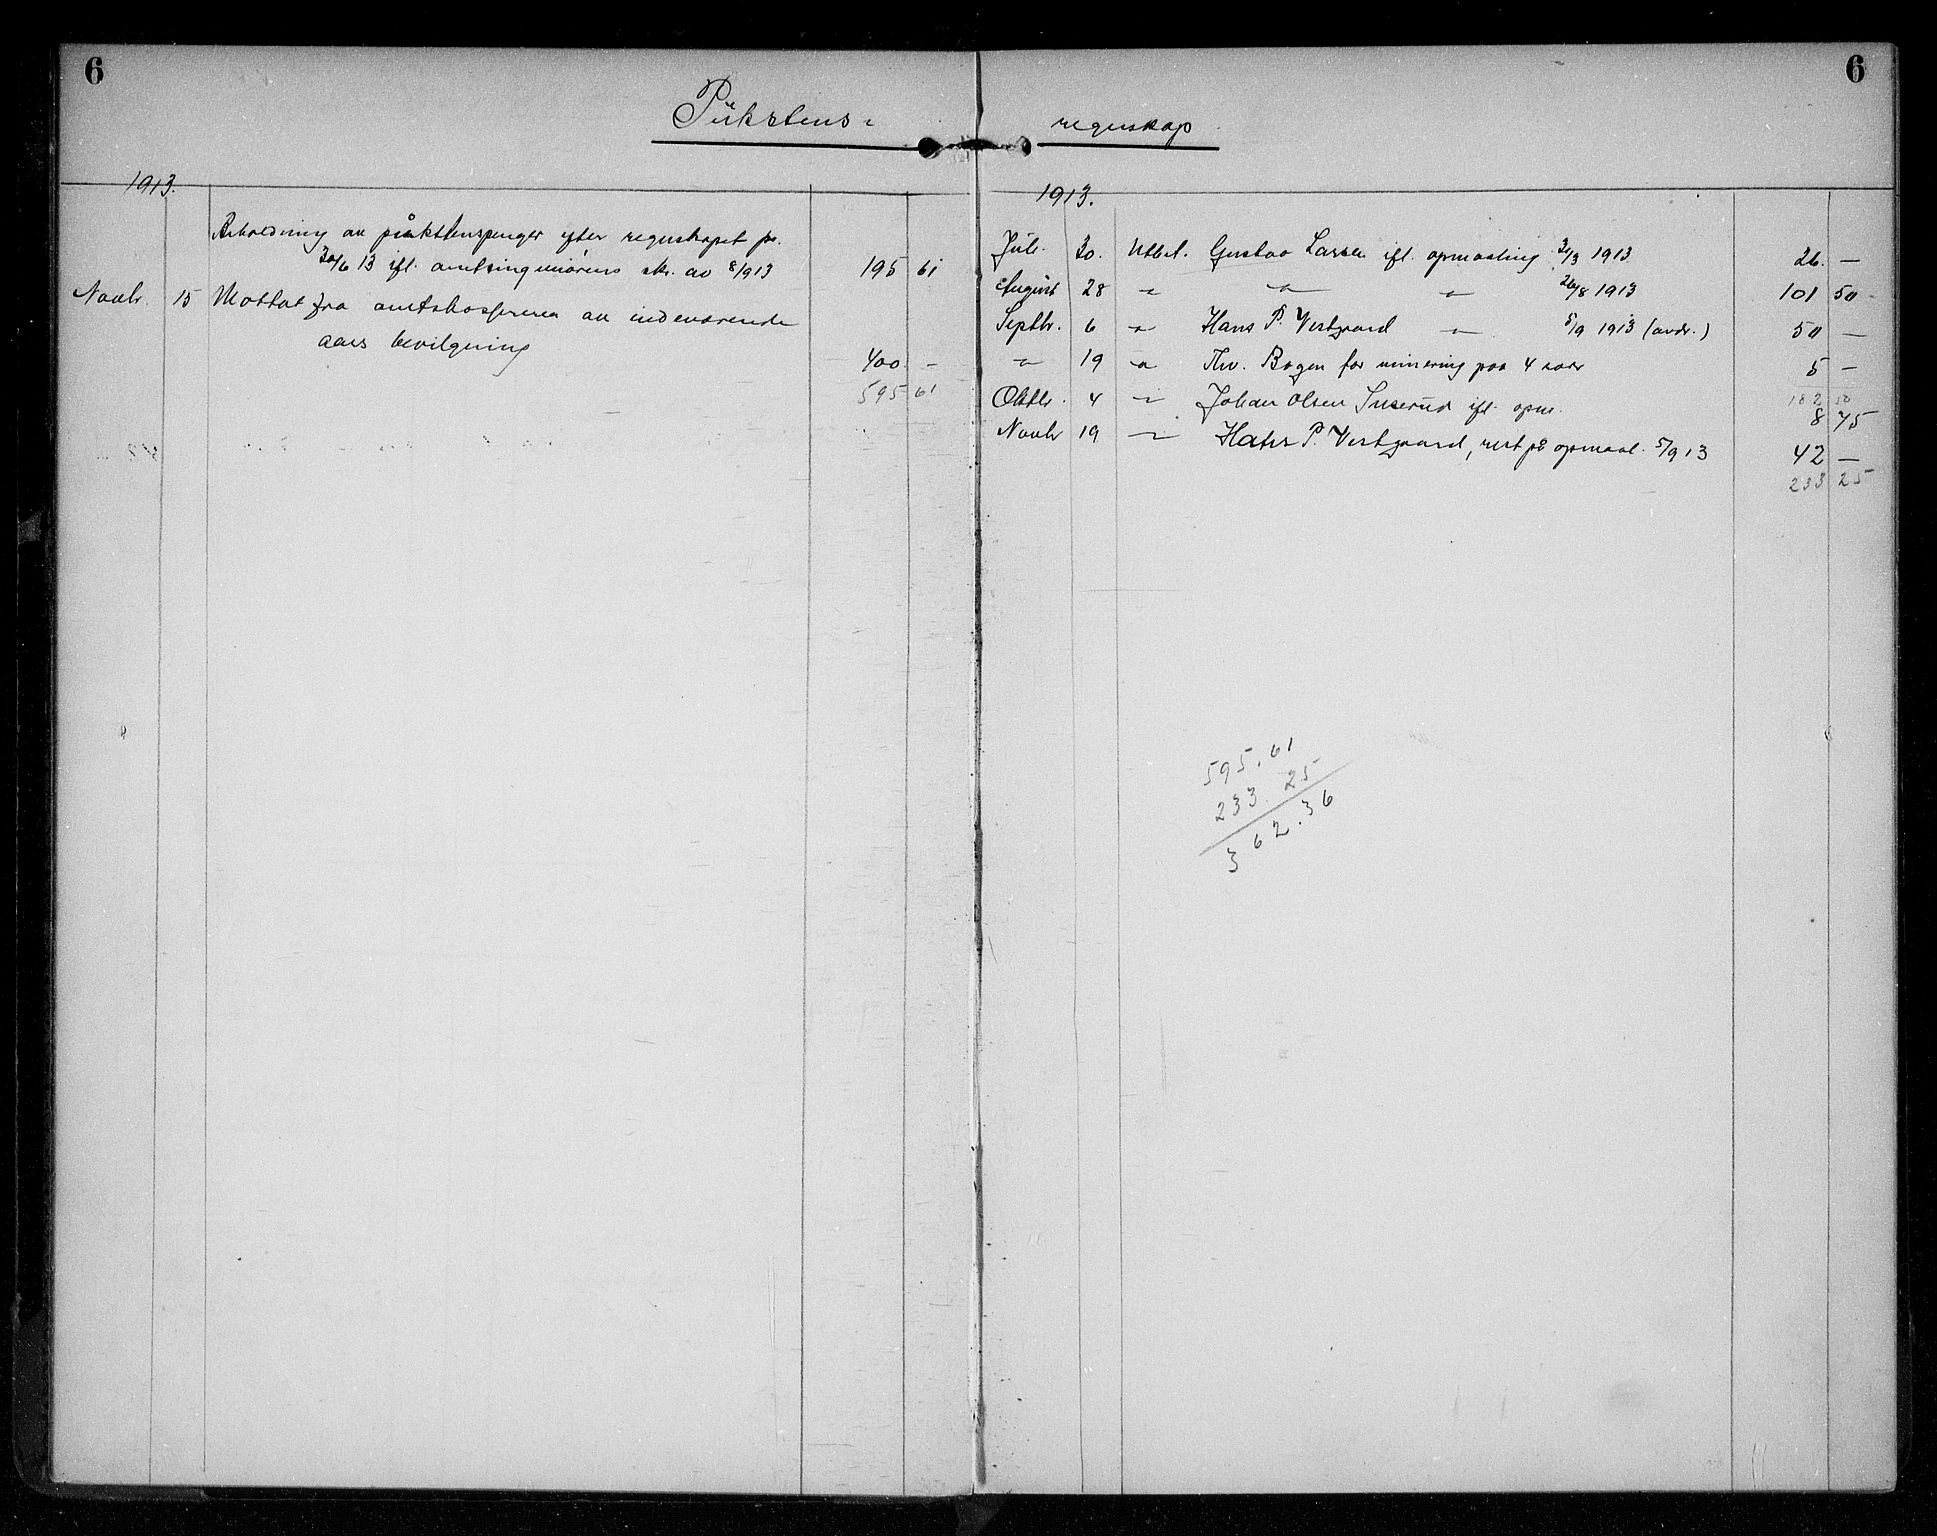 6
6
Pükstens-
regnskap
1913.
Beholdning av pükstenspenger efter regnskapet pr.
30/6 13 ifl. amtsingeniørens skr. av 8/9 13
195 61
Novbr. 15 Mottat fra amtskassereren av indeværende
aars bevilgning
400 -
595 61
1913.
Juli 30. Utbet. Gustav Larsen ifl. opmaaling 31/3 1913 26. —
August 28 " " " 26/8 1913 101 50
Septbr. 6 " Hans P. Vestgaard " 5/9 1913 (avdr.) 50 —
" 19 " Thv. Bogen for minering paa 4 5 —
182 50
Oktbr. 4 " Johan Olsen ifl. opm. 8 75
Novbr 19 " Hans P. Vestgaard, rest på opmaal. 5/9 13 42 —
233 25
595.61
233 25
362.36